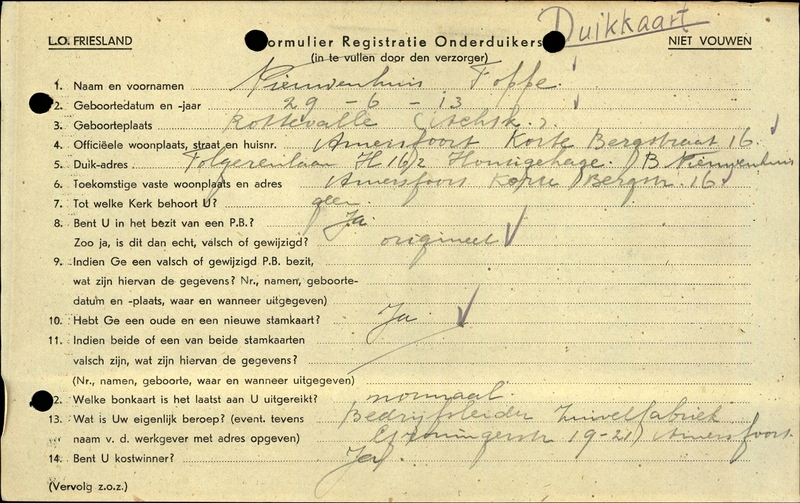 Duikkaart
L.O. FRIESLAND
Formulier Registratie Onderduikers
NIET VOUWEN
(in te vullen door den verzorger)
1. Naam en voornamen Nieuwenhuis Foppe.
2. Geboortedatum en -jaar 29-6-13
3. Geboorteplaats Rottevalle (Achtk.)
4. Officiëele woonplaats, straat en huisnr. Amersfoort Korte Bergstraat 16
5. Duik-adres Folgerenlaan H 16/2 Houtigehage. B Nieuwenhuis
6. Toekomstige vaste woonplaats en adres Amersfoort Korte Bergstr. 16
7. Tot welke Kerk behoort U? geen
8. Bent U in het bezit van een P.B.? Ja
Zoo ja, is dit dan echt, valsch of gewijzigd? origineel
9. Indien Ge een valsch of gewijzigd P.B. bezit,
wat zijn hiervan de gegevens? Nr., namen, geboorte-
datum en -plaats, waar en wanneer uitgegeven)
10. Hebt Ge een oude en een nieuwe stamkaart? Ja
11. Indien beide of een van beide stamkaarten
valsch zijn, wat zijn hiervan de gegevens?
(Nr., namen, geboorte, waar en wanneer uitgegeven)
12. Welke bonkaart is het laatst aan U uitgereikt? normaal.
13. Wat is Uw eigenlijk beroep? (event. tevens Bedrijfsleider Zuivelfabriek
naam v. d. werkgever met adres opgeven) Groningerstr 19-21 Amersfoort.
14. Bent U kostwinner? Ja
(Vervolg z.o.z.)